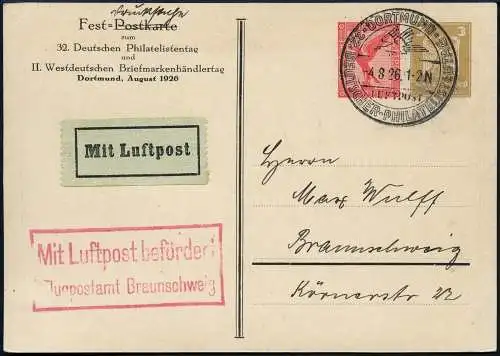 Drucksache
Fest=Postkarte
zum
32. Deutschen Philatelistentag
und
II. Westdeutschen Briefmarkenhändlertag
Dortmund, August 1926
Mit Luftpost
Mit Luftpost befördert
Flugpostamt Braunschweig
DORTMUND
4.8.26.1-2N
LUFTPOST
3
Herrn
Max Wulff
Braunschweig
Körnerstr 22